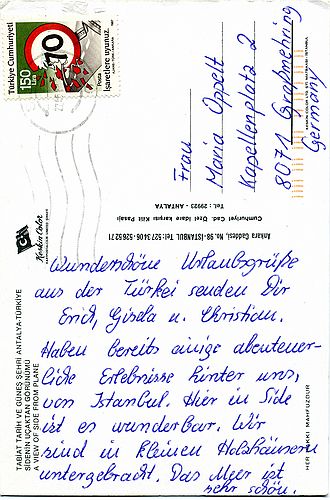 Türkiye Cumhuriyeti
150
LİRA
70
Posta
İşaretlere uyunuz.
1987
Frau
Maria Oppelt
Kapellenplatz 2
8071 Großmehring
Germany
Keskin Color
Ankara Caddesi, No: 98 - İSTANBUL Tel: 527 34 06 - 526 52 21
Cumhuriyet Cad. Özel İdare karşısı Kilit Pasajı
Tel.: 29923 - ANTALYA
TABİAT TARİH VE GÜNEŞ ŞEHRİ ANTALYA-TÜRKİYE
SİDENİN UÇAKTAN GÖRÜNÜMÜ
A VIEW OF SIDE FROM PLANE
HER HAKKI MAHFUZDUR
Wunderschöne Urlaubsgrüße
aus der Türkei senden Dir
Erich, Gisela u. Christian.
Haben bereits einige abenteuer-
liche Erlebnisse hinter uns,
von Istanbul. Hier in Side
ist es wunderbar. Wir
sind in kleinen Holzhäusern
untergebracht. Das Meer ist
sehr schön.